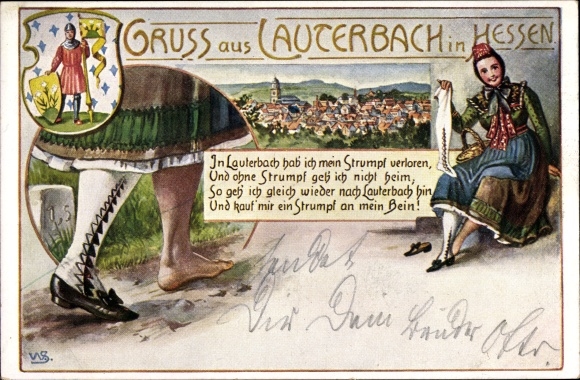 GRUSS aus LAUTERBACH in HESSEN.
In Lauterbach hab ich mein Strumpf verloren,
Und ohne Strumpf geh ich nicht heim,
So geh ich gleich wieder nach Lauterbach hin
Und kauf' mir ein Strumpf an mein Bein!
1,5
sendet
Dir Dein Bruder Otto.
WS.